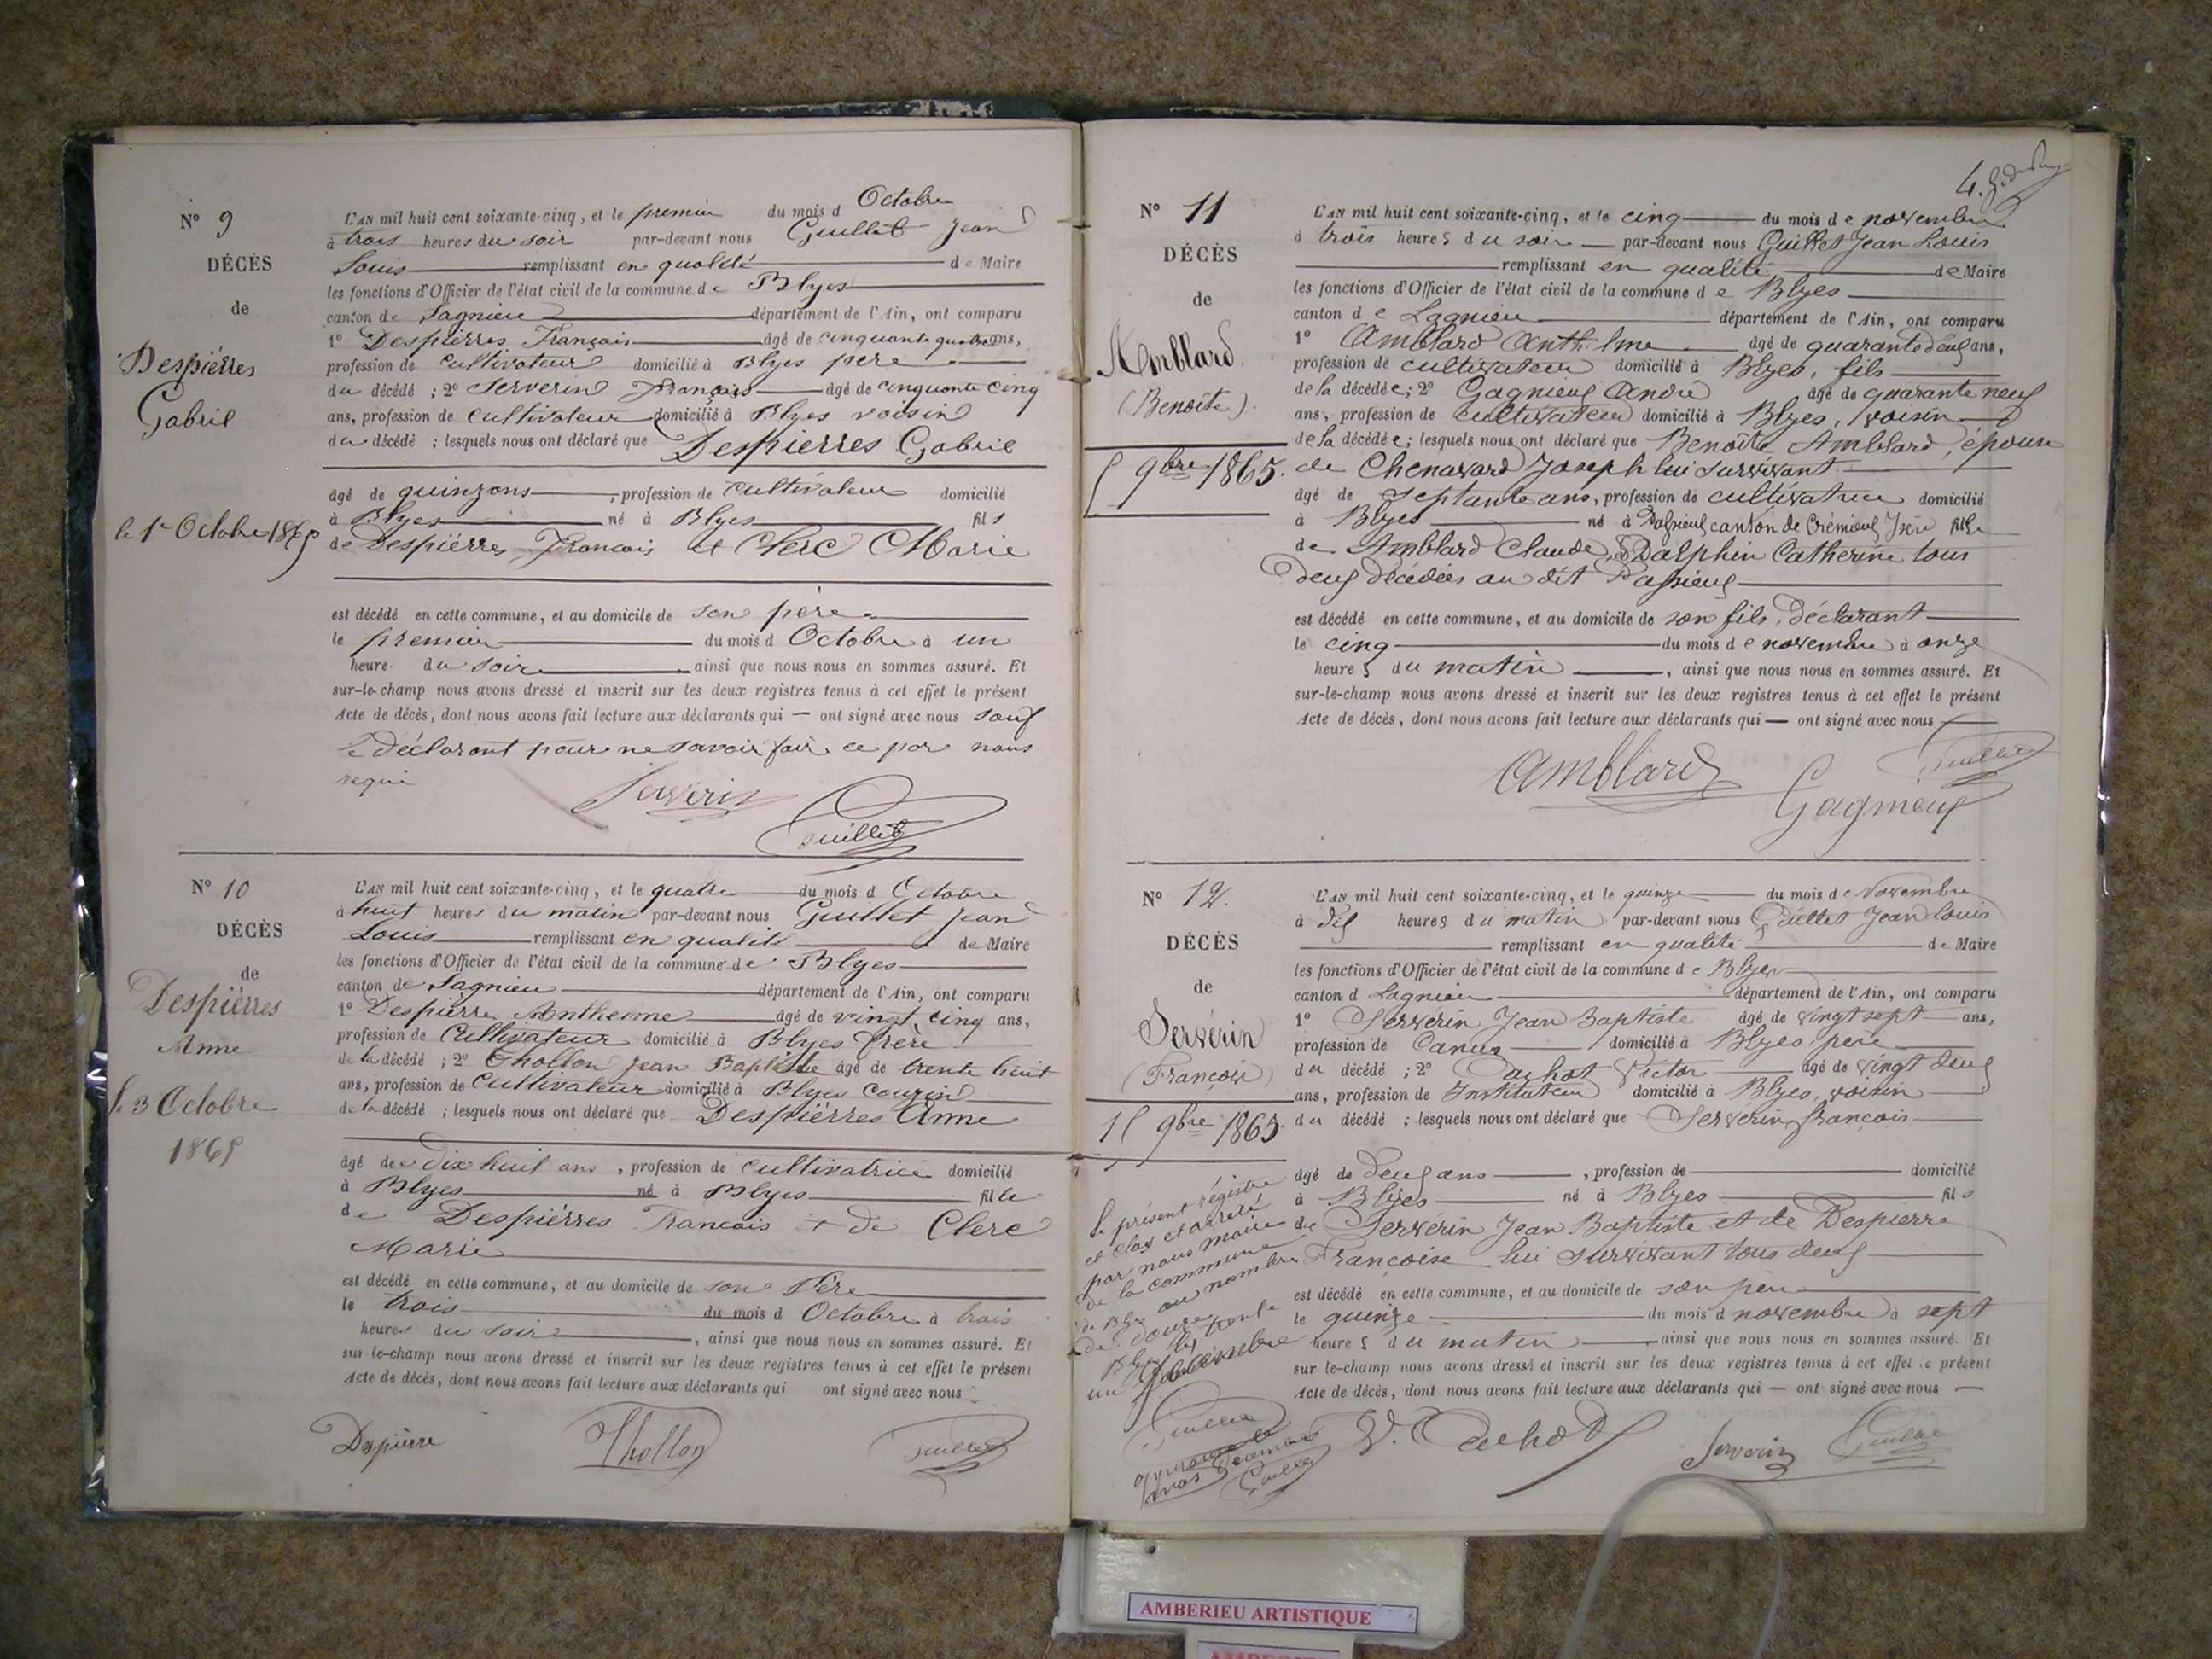 N° 9
DÉCÈS
de
Despiérres
Gabriel
le 1er Octobre 1865
L'AN mil huit cent soixante-cinq, et le premier du mois d Octobre
à trois heures du soir par-devant nous Guillet Jean
Louis remplissant en qualité de Maire
les fonctions d'Officier de l'état civil de la commune de Blyes
canton de Lagnieu département de l'Ain, ont comparu
1° Despierres François agé de cinquante quatre ans,
profession de cultivateur domicilié à Blyes père
du décédé ; 2° Serverin François agé de cinquante cinq
ans, profession de cultivateur domicilié à Blyes voisin
du décédé ; lesquels nous ont déclaré que Despierres Gabriel
âgé de quinze ans, profession de cultivateur domicilié
à Blyes né à Blyes fils
de Despiérres François et Clerc Marie
est décédé en cette commune, et au domicile de son père
le premier du mois d Octobre à un
heure du soir ainsi que nous nous en sommes assuré. Et
sur-le-champ nous avons dressé et inscrit sur les deux registres tenus à cet effet le présent
Acte de décès, dont nous avons fait lecture aux déclarants qui — ont signé avec nous sauf
le déclarant pour ne savoir faire ce par nous
requi
Serverin
Guillet
N° 10
DÉCÈS
de
Despiérres
Anne
le 3 Octobre
1865
L'AN mil huit cent soixante-cinq, et le quatre du mois d Octobre
à huit heures du matin par-devant nous Guillet Jean
Louis remplissant en qualité de Maire
les fonctions d'Officier de l'état civil de la commune de Blyes
canton de Lagnieu département de l'Ain, ont comparu
1° Despiérre Anthelme agé de vingt cinq ans,
profession de Cultivateur domicilié à Blyes frère
de la décédé ; 2° Thollon Jean Baptiste agé de trente huit
ans, profession de Cultivateur domicilié à Blyes cousin
de la décédé ; lesquels nous ont déclaré que Despiérres Anne
âgé de dix huit ans, profession de cultivatrice domicilié
à Blyes né à Blyes fille
de Despiérres Francois + de Clerc
Marie
est décédé en cette commune, et au domicile de son Père
le trois du mois d Octobre à trois
heures du soir, ainsi que nous nous en sommes assuré. Et
sur-le-champ nous avons dressé et inscrit sur les deux registres tenus à cet effet le présent
Acte de décès, dont nous avons fait lecture aux déclarants qui ont signé avec nous
Despiérre Thollon Guillet
4.
N° 11
DÉCÈS
de
Amblard
(Benoîte).
5 9bre 1865.
L'AN mil huit cent soixante-cinq, et le cinq du mois de novembre
à trois heures du soir par-devant nous Guillet Jean Louis
remplissant en qualité de Maire
les fonctions d'Officier de l'état civil de la commune de Blyes
canton de Lagnieu département de l'Ain, ont comparu
1° Amblard Anthelme agé de quarante deux ans,
profession de cultivateur domicilié à Blyes, fils
de la décédée; 2° Gagnieux André agé de quarante neuf
ans, profession de cultivateur domicilié à Blyes, voisin
de la décédée; lesquels nous ont déclaré que Benoîte Amblard, épouse
de Chenavard Joseph lui survivant
âgé de septante ans, profession de cultivatrice domicilié
à Blyes né à Passieux canton de Crémieux Isère fille
de Amblard Claude, & Dalphin Catherine tous
deux décédés au dit Passieux
est décédé en cette commune, et au domicile de son fils, déclarant
le cinq du mois de novembre à onze
heures du matin, ainsi que nous nous en sommes assuré. Et
sur-le-champ nous avons dressé et inscrit sur les deux registres tenus à cet effet le présent
Acte de décès, dont nous avons fait lecture aux déclarants qui — ont signé avec nous
Amblard Guillet
Gagnieux
N° 12.
DÉCÈS
de
Servérin
(François)
15 9bre 1865.
L'AN mil huit cent soixante-cinq, et le quinze du mois de Novembre
à dix heures du matin par-devant nous Guillet Jean Louis
remplissant en qualité de Maire
les fonctions d'Officier de l'état civil de la commune de Blyes
canton d Lagnieu département de l'Ain, ont comparu
1° Servérin Jean Baptiste agé de vingt sept ans,
profession de Canus domicilié à Blyes père
du décédé ; 2° Victor agé de vingt deux
ans, profession de Instituteur domicilié à Blyes, voisin
du décédé ; lesquels nous ont déclaré que Serverin françois
âgé de deux ans, profession de domicilié
à Blyes né à Blyes fils
de Servérin Jean Baptiste et de Despierre
Francoise lui survivant tous deux
est décédé en cette commune, et au domicile de son père
le quinze du mois d novembre à sept
heures du matin ainsi que nous nous en sommes assuré. Et
sur le-champ nous avons dressé et inscrit sur les deux registres tenus à cet effet le présent
Acte de décès, dont nous avons fait lecture aux déclarants qui — ont signé avec nous —
le présent régistre
et clos et arrêté
par nous maire
de la commune
de Blyes au nombre
de douze
Blyes le trente
un décembre
Guillet
Guillet
Serverin Guillet
AMBERIEU ARTISTIQUE